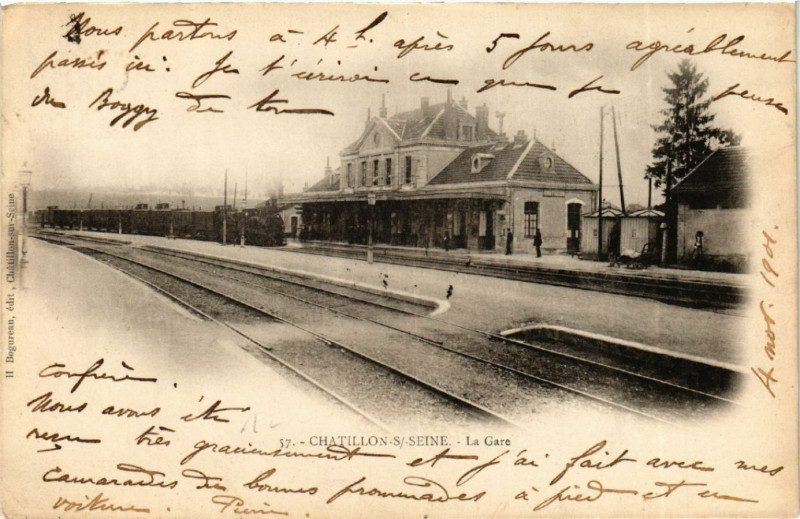 Nous partons à 4h. après 5 jours agréablement
passés ici. Je t'écrirai ce que je pense
du Boggy de ton
confrère.
Nous avons été
reçu très gracieusement et j'ai fait avec mes
camarades de bonnes promenades à pied et en
voiture.
4 nov. 1901.
57. - CHATILLON-S/-SEINE. - La Gare
H Bogureau, édit, Châtillon-sur-Seine